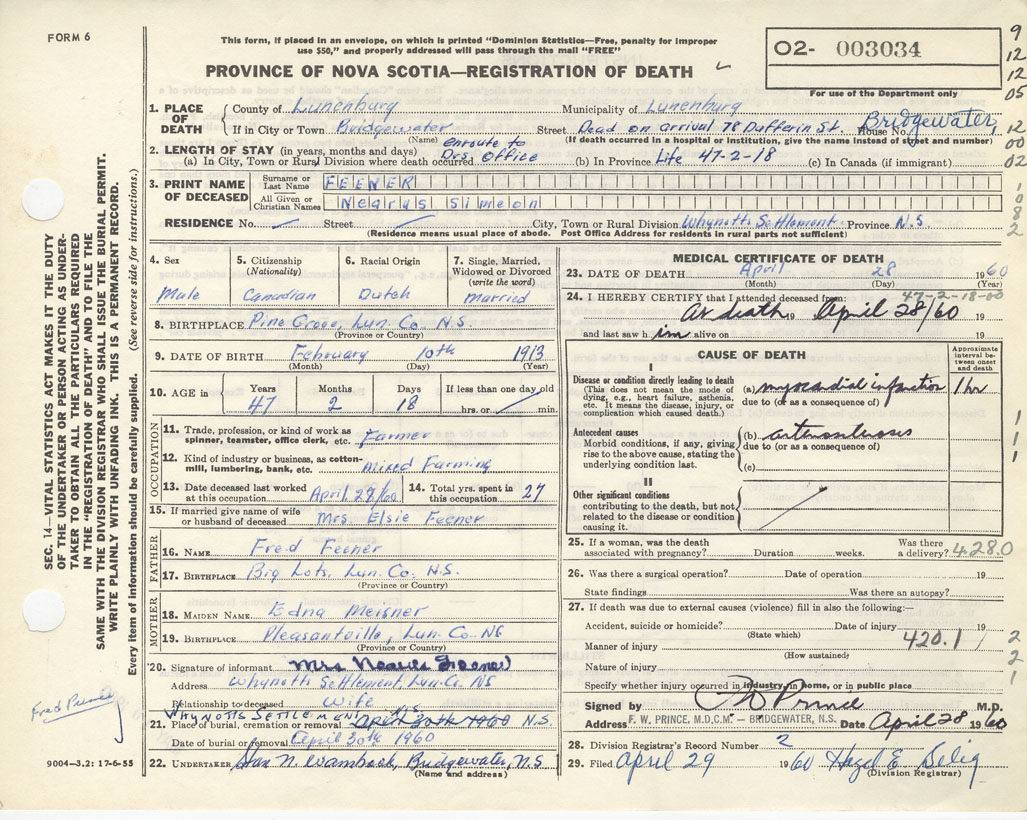 FORM 6
This form, if placed in an envelope, on which is printed "Dominion Statistics—Free, penalty for improper
use $50," and properly addressed will pass through the mail "FREE"
PROVINCE OF NOVA SCOTIA—REGISTRATION OF DEATH
02- 003034
For use of the Department only
9
12
12
05
12
00
02
1. PLACE OF DEATH
County of Lunenburg Municipality of Lunenburg
If in City or Town Bridgewater Street Dead on arrival 78 Dufferin St. House No. Bridgewater,
(Name) (If death occurred in a hospital or institution, give the name instead of street and number)
2. LENGTH OF STAY (in years, months and days) enroute to
(a) In City, Town or Rural Division where death occurred Drs. Office (b) In Province Life 47-2-18 (c) In Canada (if immigrant)
3. PRINT NAME OF DECEASED
Surname or Last Name FEENER
All Given or Christian Names Nearus Simeon
1
0
8
2
RESIDENCE No. Street City, Town or Rural Division Whynotts Settlement Province N.S.
(Residence means usual place of abode. Post Office Address for residents in rural parts not sufficient)
4. Sex
Male
5. Citizenship
(Nationality)
Canadian
6. Racial Origin
Dutch
7. Single, Married,
Widowed or Divorced
(write the word)
Married
8. BIRTHPLACE Pine Grove, Lun. Co. N.S.
(Province or Country)
9. DATE OF BIRTH February 10th 1913
(Month) (Day) (Year)
10. AGE in
Years Months Days If less than one day old
47 2 18 hrs. or min.
OCCUPATION
11. Trade, profession, or kind of work as
spinner, teamster, office clerk, etc. Farmer
12. Kind of industry or business, as cotton-
mill, lumbering, bank, etc. Mixed Farming
13. Date deceased last worked
at this occupation April 27/60
14. Total yrs. spent in
this occupation 27
15. If married give name of wife
or husband of deceased Mrs Elsie Feener
FATHER
16. NAME Fred Feener
17. BIRTHPLACE Big Lots, Lun. Co. N.S.
(Province or Country)
MOTHER
18. MAIDEN NAME Edna Meisner
19. BIRTHPLACE Pleasantville, Lun. Co. NS
(Province or Country)
20. Signature of informant Mrs Feener
Address Whynotts Settlement, Lun. Co. NS
Relationship to deceased wife
WHYNOTTS SETTLEMENT
21. Place of burial, cremation or removal April 30th 1960 N.S.
Date of burial or removal April 30th 1960
22. UNDERTAKER N. Wambach, Bridgewater, N.S
(Name and address)
MEDICAL CERTIFICATE OF DEATH
23. DATE OF DEATH April 28 1960
(Month) (Day) (Year)
47-2-18-00
24. I HEREBY CERTIFY that I attended deceased from:
At death 19 April 28/60
and last saw him alive on 19
CAUSE OF DEATH
Approximate
interval be-
tween onset
and death
I
Disease or condition directly leading to death
(This does not mean the mode of
dying, e.g., heart failure, asthenia,
etc. It means the disease, injury, or
complication which caused death.)
(a) myocardial infarction 1 hr
due to (or as a consequence of)
Antecedent causes
Morbid conditions, if any, giving
rise to the above cause, stating the
underlying condition last.
(b)
due to (or as a consequence of)
(c)
1
1
1
II
Other significant conditions
contributing to the death, but not
related to the disease or condition
causing it.
25. If a woman, was the death
associated with pregnancy? Duration weeks. Was there
a delivery? 4280
26. Was there a surgical operation? Date of operation 19
State findings Was there an autopsy?
27. If death was due to external causes (violence) fill in also the following:—
Accident, suicide or homicide? Date of injury 19
(State which)
Manner of injury 420.1
(How sustained)
Nature of injury
2
2
1
Specify whether injury occurred in industry, in home, or in public place
Signed by Prince M.D.
Address F. W. PRINCE, M.D.C.M. — BRIDGEWATER, N.S. Date April 28 1960
28. Division Registrar's Record Number 2
29. Filed April 29 1960 Hazel E. Selig
(Division Registrar)
SEC. 14—VITAL STATISTICS ACT MAKES IT THE DUTY
OF THE UNDERTAKER OR PERSON ACTING AS UNDER-
TAKER TO OBTAIN ALL THE PARTICULARS REQUIRED
IN THE "REGISTRATION OF DEATH" AND TO FILE THE
SAME WITH THE DIVISION REGISTRAR WHO SHALL ISSUE THE BURIAL PERMIT.
WRITE PLAINLY WITH UNFADING INK. THIS IS A PERMANENT RECORD.
Every item of information should be carefully supplied. (See reverse side for instructions.)
Fred Prince
9004—3.2: 17-6-55